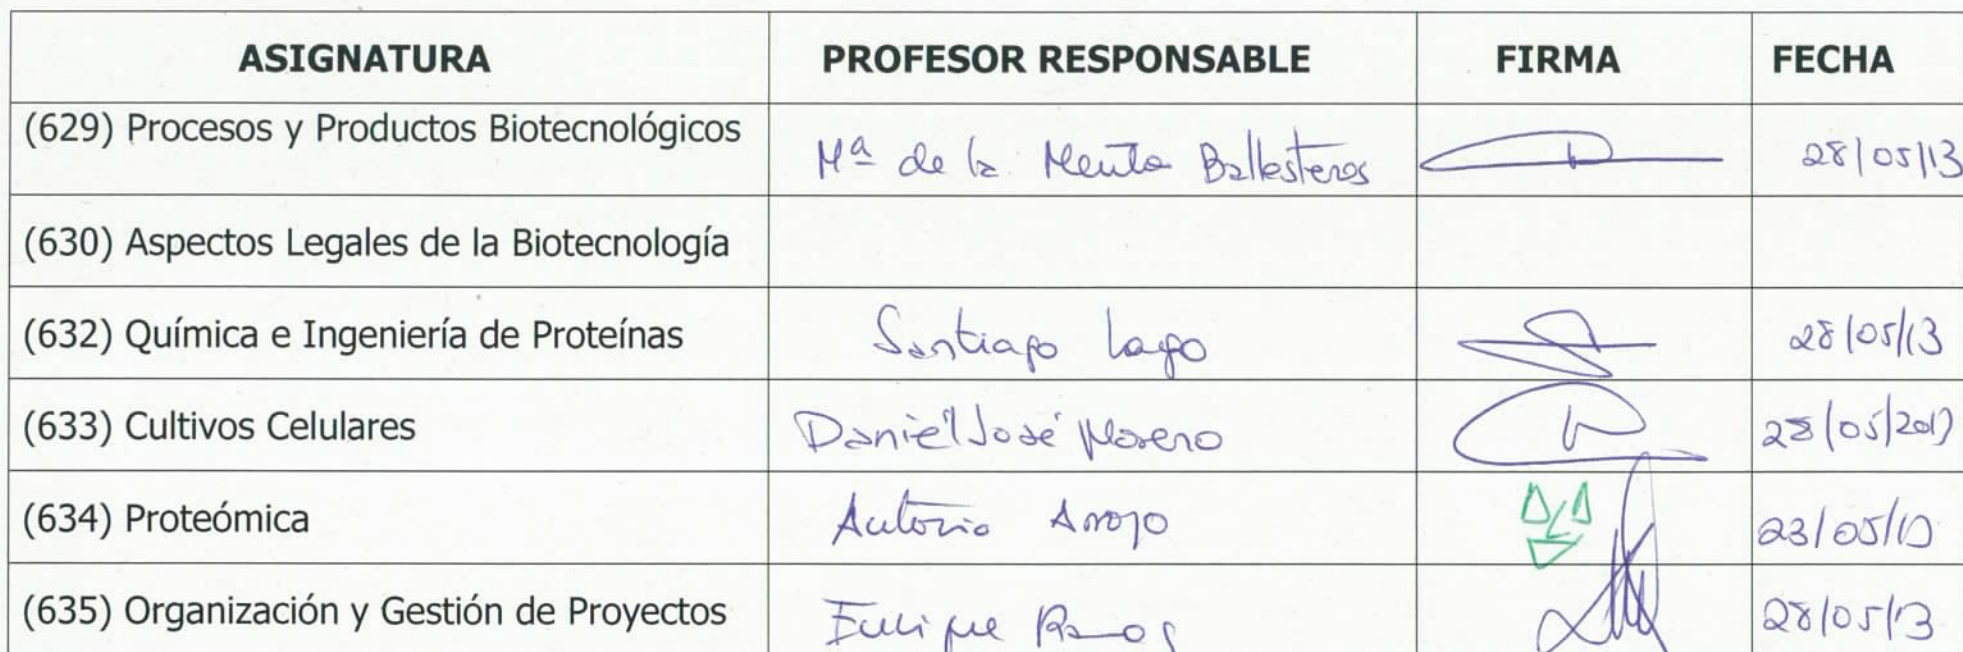 ASIGNATURA PROFESOR RESPONSABLE FIRMA FECHA
(629) Procesos y Productos Biotecnológicos Mª de la Menta Ballesteros 28/05/13
(630) Aspectos Legales de la Biotecnología
(632) Química e Ingeniería de Proteínas Santiago Lago 28/05/13
(633) Cultivos Celulares Daniel José Moreno 28/05/2013
(634) Proteómica Antonio Arroyo 23/05/13
(635) Organización y Gestión de Proyectos Enrique Ramos 28/05/13